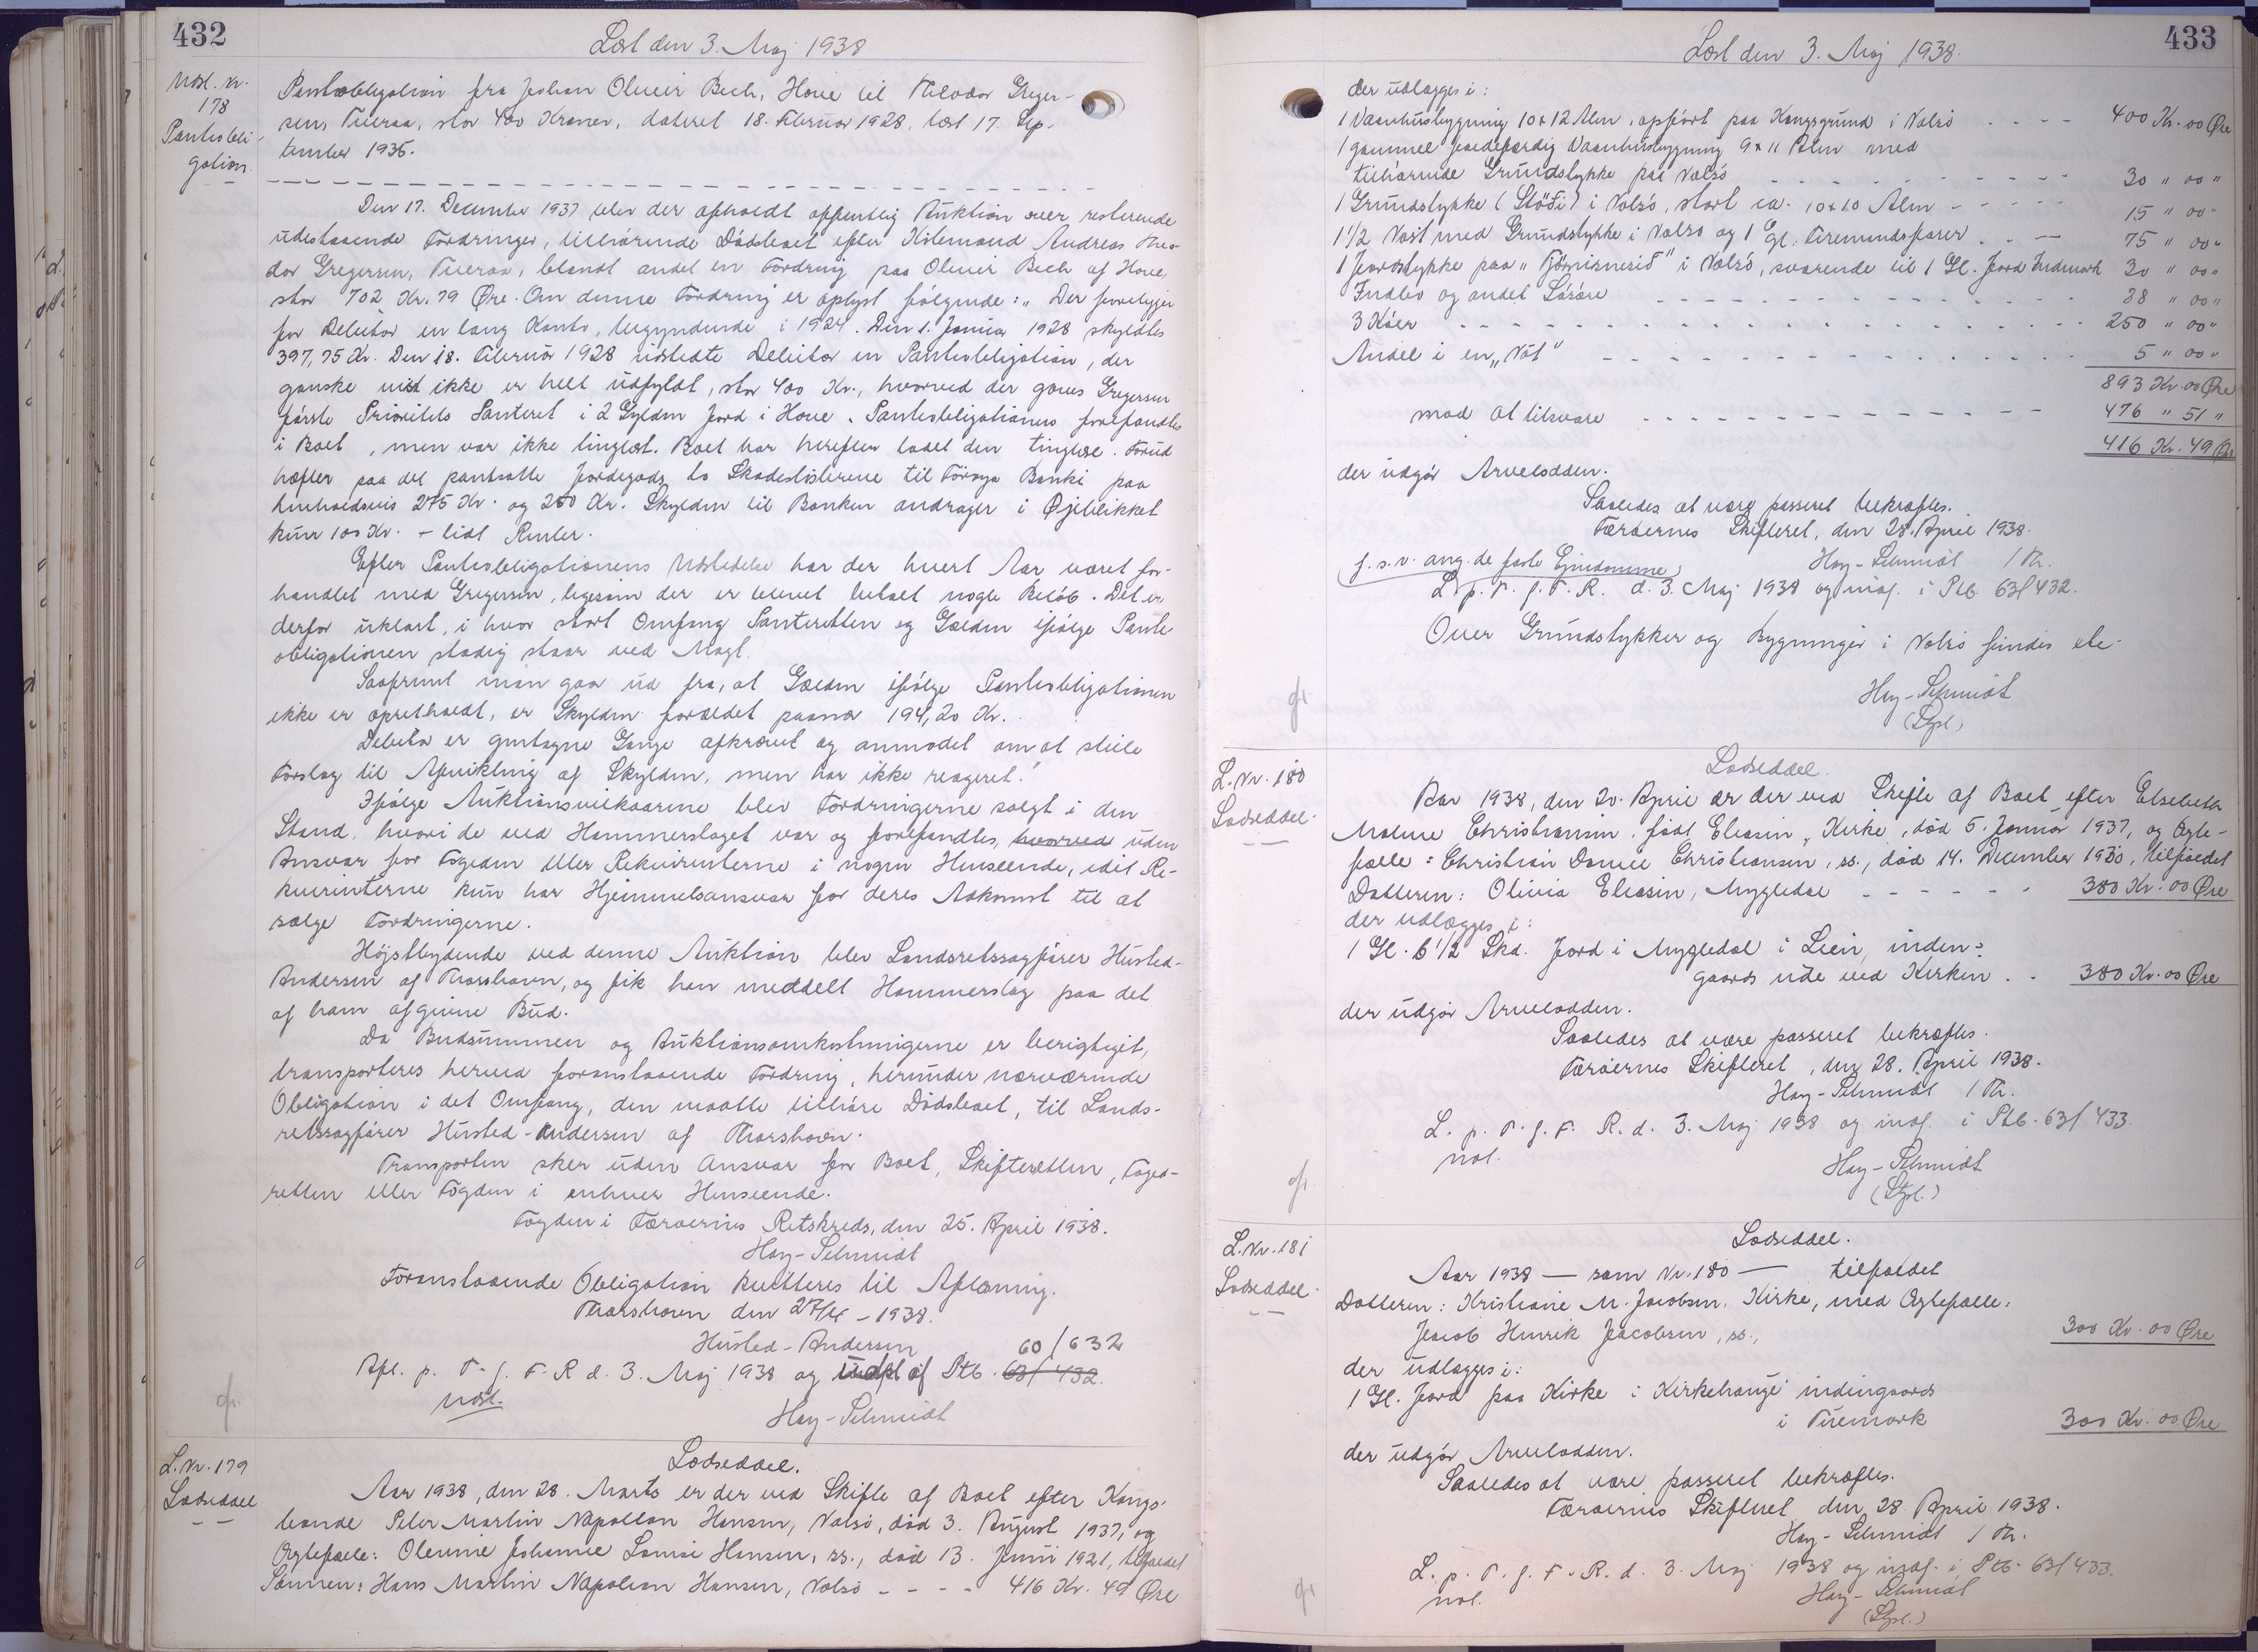 432
Læst den 3. Maj 1938
Udsl. Nr.
178
Pantobli-
gation
Pantobligation fra Johan Oliver Bech, Hove til Theodor Greger-
sen, Tveraa, stor 400 Kroner, dateret 18. Februar 1928, læst 17. Sep-
tember 1935.
Den 17. December 1937 blev der afholdt offentlig Auktion over resterende
udestaaende Fordringer, tilhørende Dødsboet efter Købmand Andreas Theo-
dor Gregersen, Tveraa, blandt andet en Fordring paa Oliver Bech af Hove,
stor 702 Kr. 79 Øre. Om denne Fordring er oplyst følgende: „Der foreligger
for Debitor en lang Konto, begyndende i 1924. Den 1. Januar 1928 skyldtes
397,75 Kr. Den 18. Februar 1928 udstedte Debitor en Pantobligation, der
ganske vist ikke er helt udfyldt, stor 400 Kr., hvorved der gaves Gregersen
første Prioritets Panteret i 2 Gylden Jord i Hove. Pantobligationen forefandtes
i Boet, men var ikke tinglæst. Boet har herefter ladet den tinglæse. Forud
hæfter paa det pantsatte Jordegods to Skadesløsbreve til Føroya Banki paa
henholdsvis 275 Kr. og 250 Kr. Skylden til Banken andrager i Øjeblikket
kun 100 Kr. + lidt Renter.
Efter Pantobligationens Udstedelse har der hvert Aar været for-
handlet med Gregersen, ligesom der er blevet betalt nogle Beløb. Det er
derfor uklart, i hvor stort Omfang Panteretten og Gælden ifølge Pante-
obligationen stadig staar ved Magt.
Saafremt man gaar ud fra, at Gælden ifølge Pantobligationen
ikke er opretholdt, er Skylden forældet paanær 194,20 Kr.
Debitor er gentagne Gange afkrævet og anmodet om at stille
Forslag til Afvikling af Skylden, men har ikke reageret."
Ifølge Auktionsvilkaarene blev Fordringerne solgt i den
Stand, hvori de ved Hammerslaget var og forefandtes, hvorved uden
Ansvar for Fogeden eller Rekvirenterne i nogen Henseende, idet Re-
kvirenterne kun har Hjemmelsansvar for deres Adkomst til at
sælge Fordringerne.
Højstbydende ved denne Auktion blev Landsretssagfører Husted-
Andersen af Thorshavn, og fik han meddelt Hammerslag paa det
af ham afgivne Bud.
Da Budsummen og Auktionsomkostningerne er berigtiget,
transporteres herved foranstaaende Fordring, herunder nærværende
Obligation i det Omfang, den maatte tilhøre Dødsboet, til Lands-
retssagfører Husted-Andersen af Thorshavn.
Transporten sker uden Ansvar for Boet, Skifteretten, Foged-
retten eller Fogden i enhver Henseende.
Fogden i Færøernes Retskreds, den 25. April 1938.
Hay-Schmidt
Foranstaaende Obligation kvitteres til Aflæsning.
Thorshavn den 27/4 - 1938.
Husted-Andersen 60/632
Afl. p. T. f. F. R d. 3. Maj 1938 og udsl af Ptb. 63/432.
Udsl.
Hay-Schmidt
L. Nr. 179
Lodseddel
Lodseddel.
Aar 1938, den 28. Marts er der ved Skifte af Boet efter Kongs-
bonde Peter Martin Napoleon Hansen, Nolsø, død 3. August 1937, og
Ægtefælle: Olevine Johanne Louise Hansen, ss., død 13. Juni 1921, tilfaldet
Sønnen: Hans Martin Napoleon Hansen, Nolsø - - - - 416 Kr. 49 Øre
433
Læst den 3. Maj 1938.
der udlægges i:
1 Vaanhusbygning 10 x 12 Alen, opført paa Kongsgrund i Nolsø - - - - 400 Kr. 00 Øre
1 gammel Vaanhusbygning 9 x 11 Alen med
tilhørende Grundstykke paa Nolsø - - - - 30 " 00 "
1 Grundstykke (Støði) i Nolsø, stort ca. 10 x 10 Alen - - - - 15 " 00 "
1 1/2 Nøst med Grundstykke i Nolsø og 1 gl. Firemandsfarer - - - 75 " 00 "
1 Jordstykke paa „ " i Nolsø, svarende til 1 Gl. Jord Indmark 30 " 00 "
Indbo og andet Løsøre - - - - 38 " 00 "
3 Køer - - - - 250 " 00 "
Andel i en „Nót" - - - - 5 " 00 "
893 Kr. 00 Øre
mod at tilsvare - - - - 476 " 51 "
416 Kr. 49 Øre
der udgør Arvelodden.
Saaledes at være passeret bekræftes.
Færøernes Skifteret, den 28. April 1938.
f. s. v. ang. de faste Ejendomme)
Hay-Schmidt / Th.
L. p. T. f. F. R. d. 3. Maj 1938 og indf. i Ptb. 63/432.
Over Grundstykker og Bygninger i Nolsø findes ele-
Hay-Schmidt
L. Nr. 180
Lodseddel.
Lodseddel.
Aar 1938, den 20. April er der ved Skifte af Boet efter Elsebeth
Malene Christiansen, født Eliasen, Kirke, død 5. Januar 1937, og Ægte-
fælle: Christian Daniel Christiansen, ss., død 14. December 1930, tilfaldet
Datteren: Olivia Eliasen, Mygledal - - - - 380 Kr. 00 Øre
der udlægges i:
1 Gl. 6 1/2 Skd. Jord i Mygledal i Leir, inden-
gaards ude ved Kirken - - 380 Kr. 00 Øre
der udgør Arvelodden.
Saaledes at være passeret bekræftes.
Færøernes Skifteret, den 28. April 1938.
Hay-Schmidt / Th.
L. p. T. f. F. R. d. 3. Maj 1938 og indf. i Ptb. 63/433.
not.
Hay-Schmidt
L. Nr. 181
Lodseddel.
Lodseddel.
Aar 1938 — som Nr. 180 — tilfaldet
Datteren: Kristiane M. Jacobsen, Kirke, med Ægtefælle:
Jacob Henrik Jacobsen, ss., 300 Kr. 00 Øre
der udlægges i:
1 Gl. Jord paa Kirke i Kirkehauge indengaards
i Túemark 300 Kr. 00 Øre
der udgør Arvelodden.
Saaledes at være passeret bekræftes.
Færøernes Skifteret den 28. April 1938.
Hay-Schmidt / Th.
L. p. T. f. F. R. d. 3. Maj 1938 og indf. i Ptb. 63/433.
not.
Hay-Schmidt